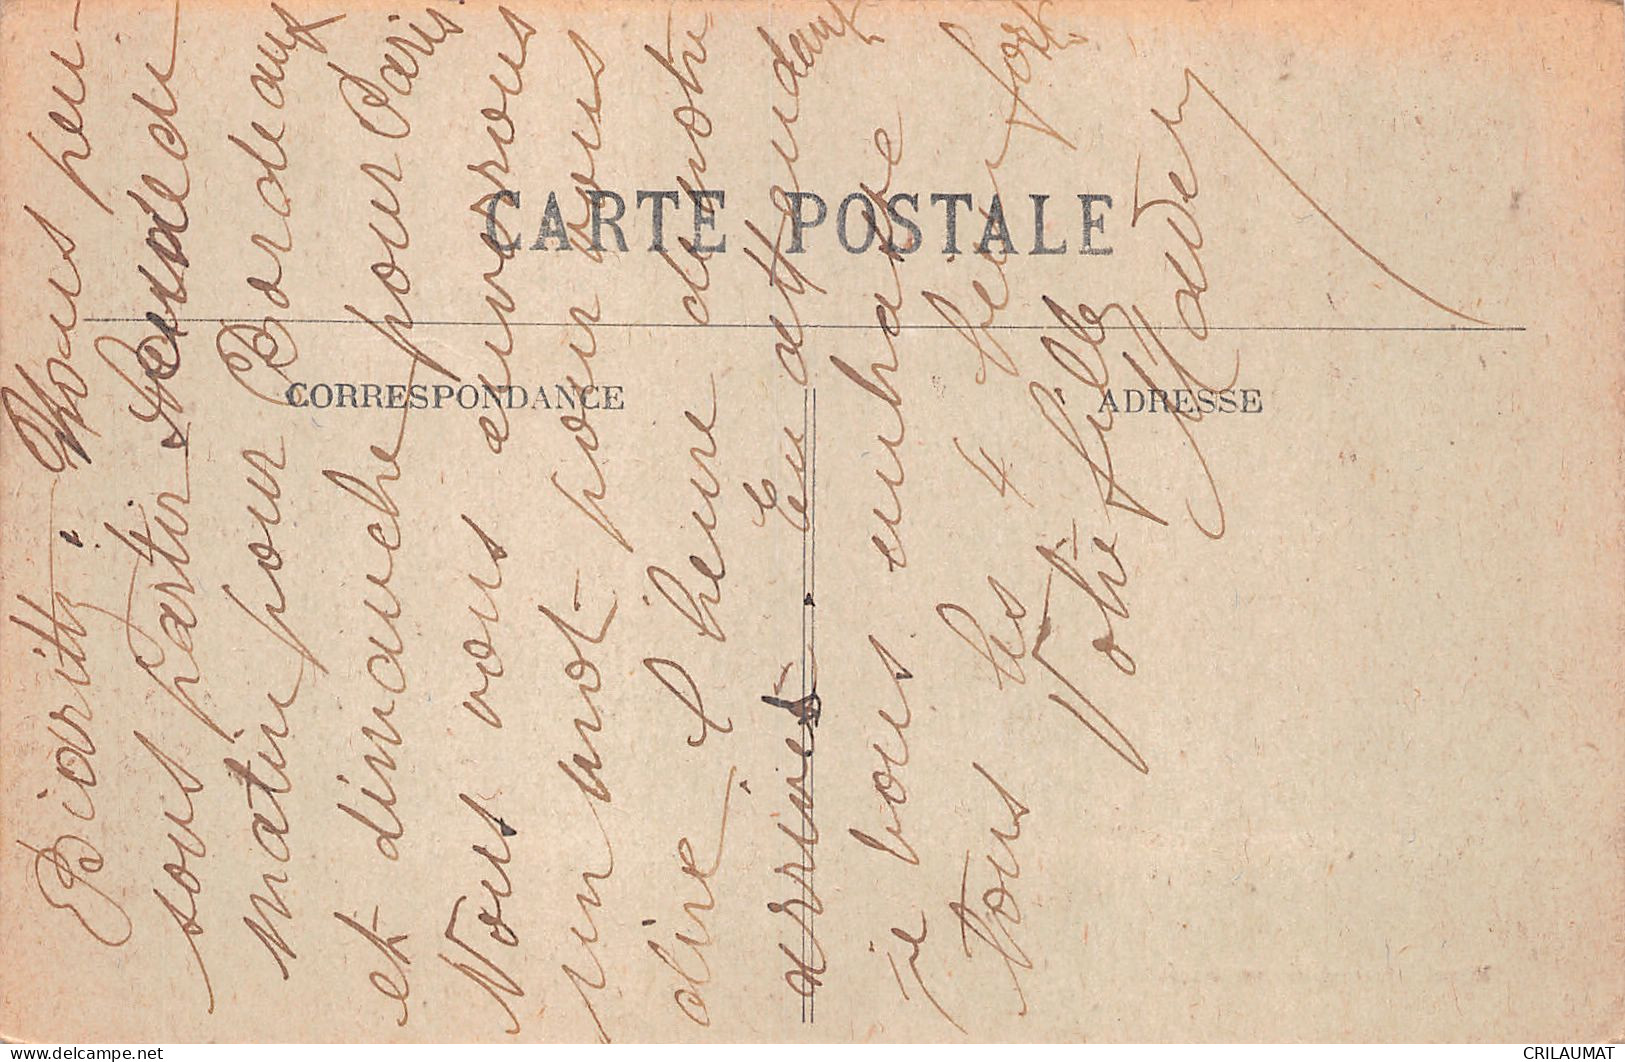 CARTE POSTALE
CORRESPONDANCE
ADRESSE
Biarritz : Nous pen-
sous partir
matin pour Bordeaux
et dimanche pour Paris
Nous vous enverrous
un mot pour vous
dire l'heure de notre
arrivés. En attendant
je vous embrasse
Tous les 4 bien fort
Votre fille
CRILAUMAT